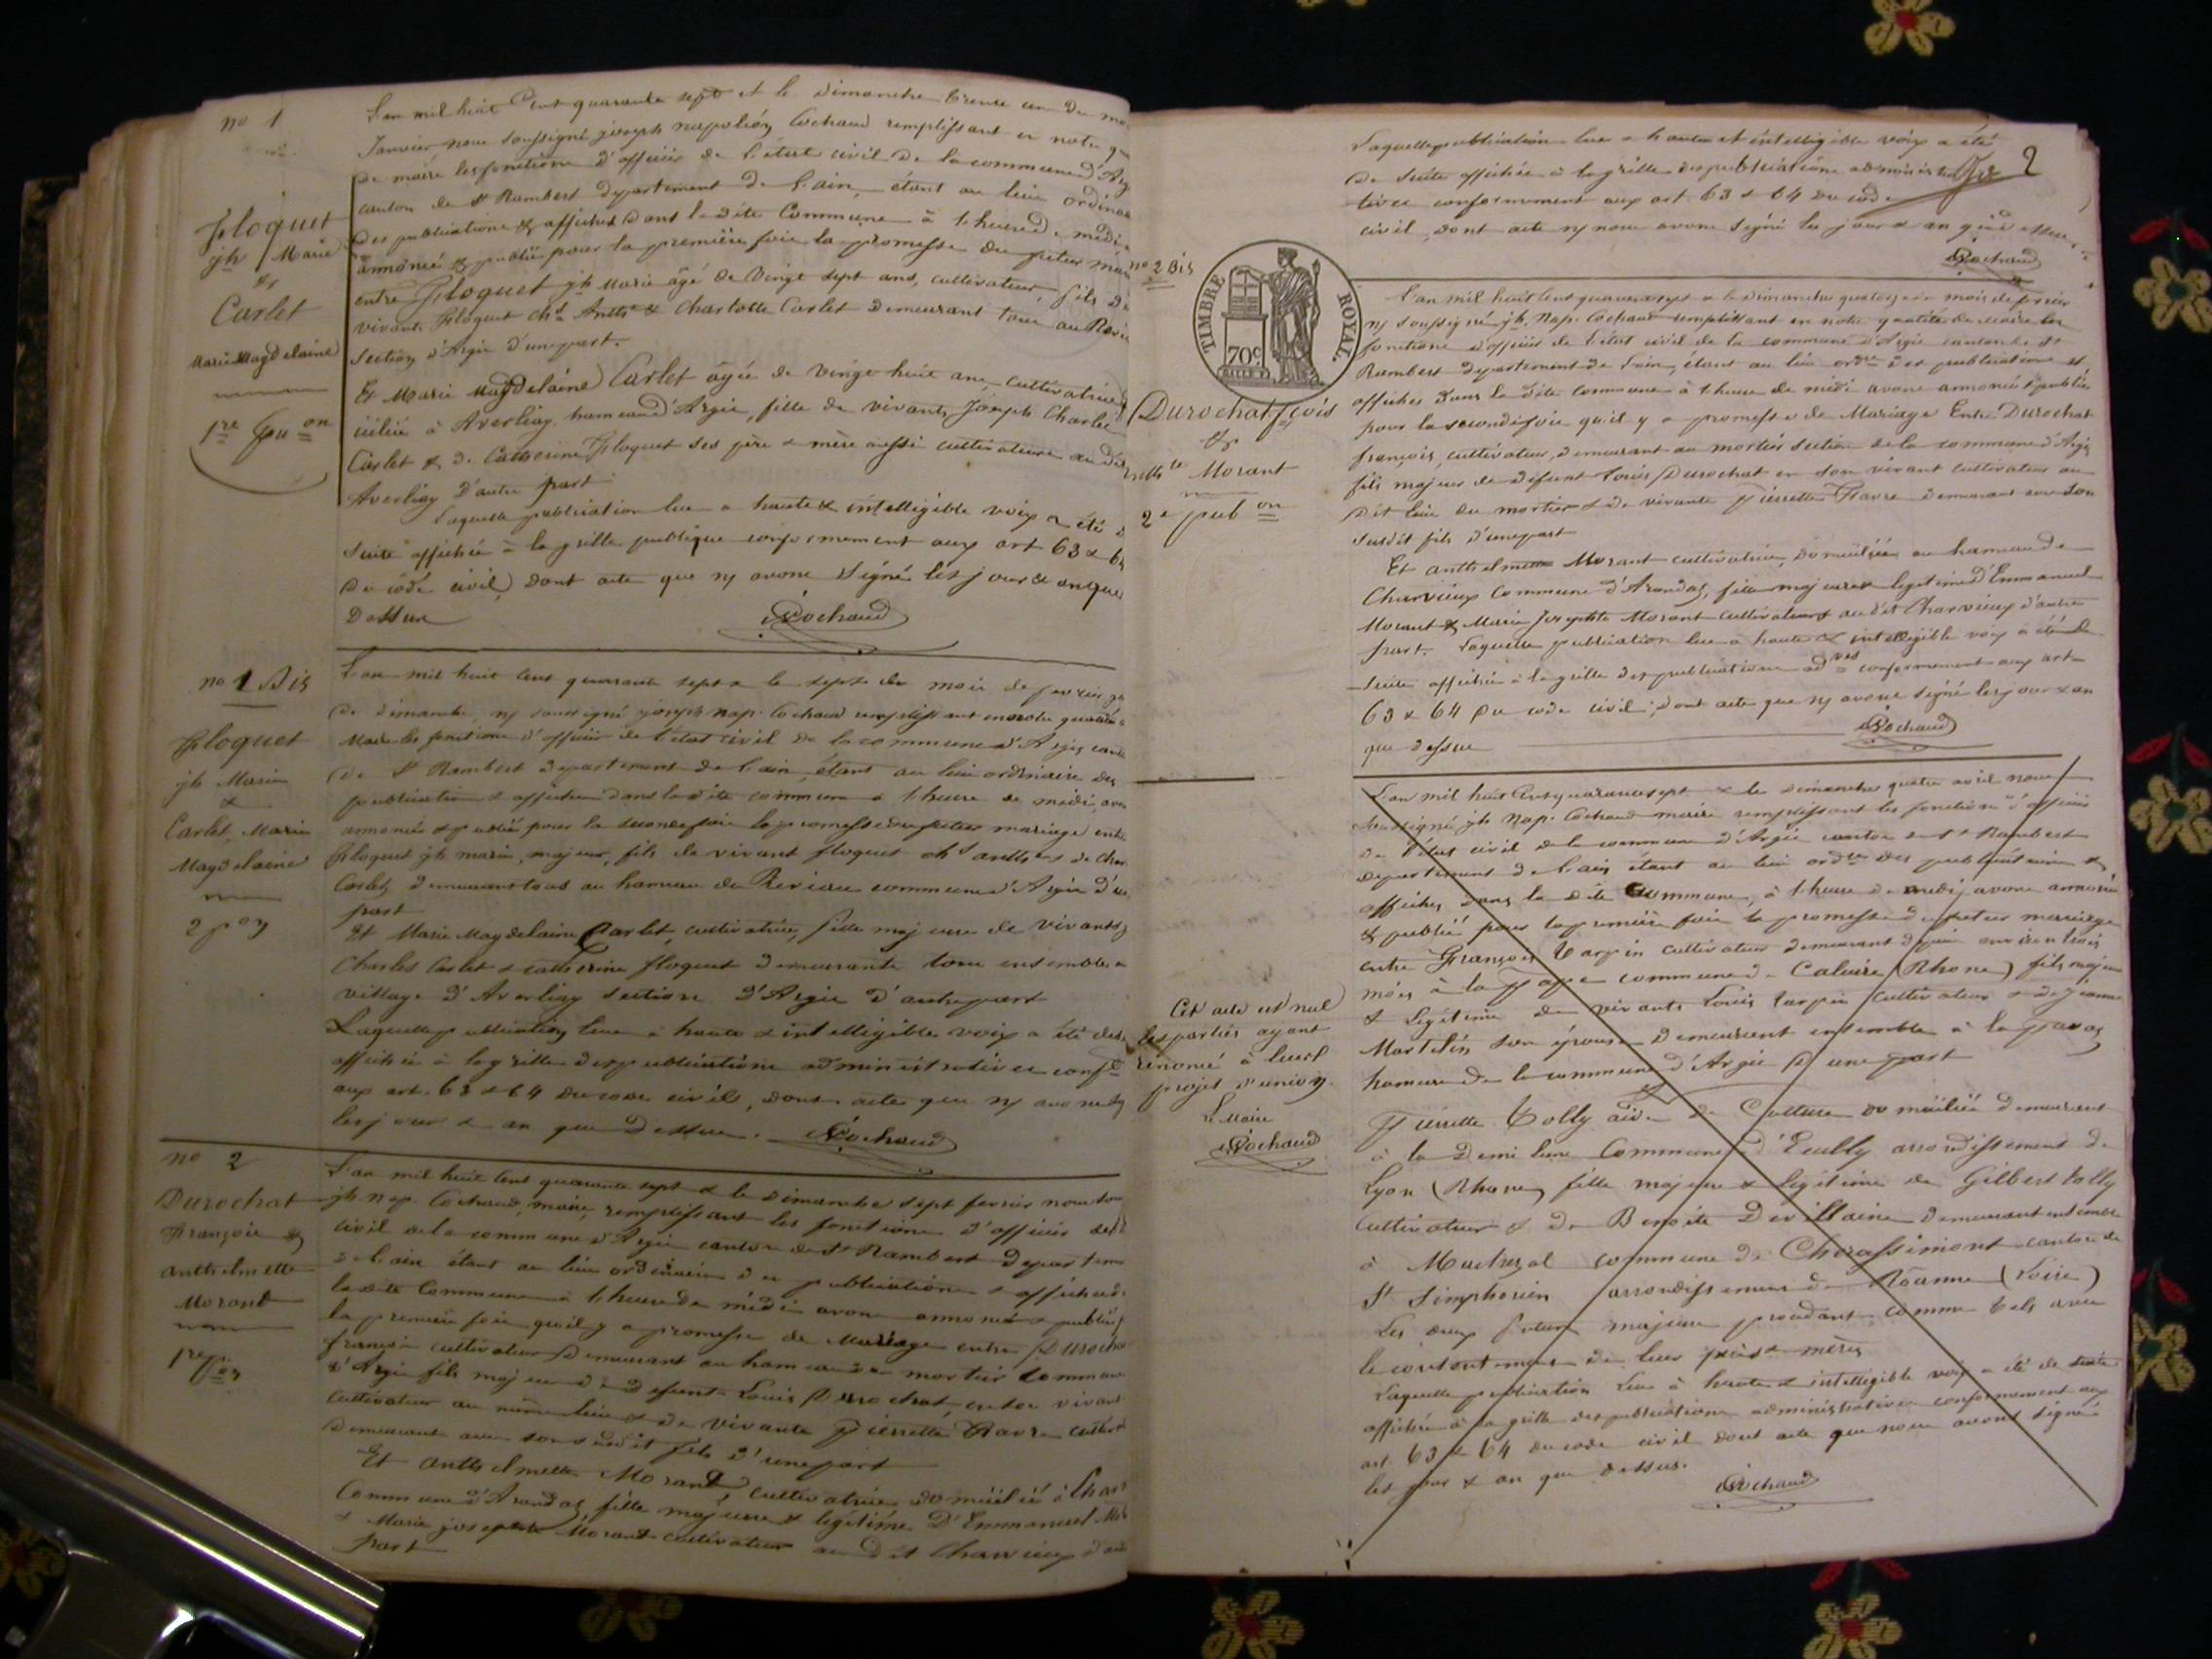 no 1
Floquet
jh Marie
&
Carlet
Marie Magdelaine
1re pu on
L'an mil huit Cent quarante sept et le dimanche trente un du
Janvier nous soussigné joseph napoléon Cochaud remplissant en notre
de maire les fonctions d'officier de l'etat civil de la commune d'
canton de St Rambert departement de l'ain, étant au lieu
des publications & affiches dans la dite Commune à 1 heure de
annoncé & publié pour la première fois la promesse du futur
entre Floquet jh Marie âgé de vingt sept ans, cultivateur, fils de
vivants Floquet chs Anthe & Charlotte Carlet demeurant tous au
Section d'Argis d'une part.
Et Marie Magdelaine Carlet âgée de vingt huit ans, cultivatrice
à Averliaz hameau d'Argis, fille de vivants Joseph Charles
Carlet & de Catherine Floquet ses père & mère aussi cultivateurs au dit
Averliaz d'autre part
Laquelle publication lue a haute & intelligible voix a été
suite affichée à la grille publique conformement aux art 63 &
du code civil, dont acte que ns avons signé les jour & an que
dessus
Cochaud
no 1 Bis
Floquet
jh Marie
&
Carlet, Marie
Magdelaine
2 pon
L'an mil huit cent quarante sept & le sept du mois de fevrier
de dimanche, ns soussigné joseph nap. Cochaud remplissant en notre qualité
Maire les fonctions d'officier de l'état civil de la commune d'Argis
de St Rambert departement de l'ain, étant au lieu ordinaire des
publications & affiches dans la dite commune à 1 heure de midi,
annoncé & publié pour la seconde fois la promesse du futur mariage entre
Floquet jh marie, majeur, fils de vivant floquet chs anthe & de
Carlet, demeurant tous au hameau de commune d'Argis
part
Et Marie Magdelaine Carlet, cultivatrice, fille majeure de vivants
Charles Carlet & catherine floquet demeurants tous ensemble
village d'Averliaz section d'Argis d'autre part
Laquelle publication lue à haute & intelligible voix a été
affichée à la grille des publications administratives
aux art. 63 & 64 du code civil, dont acte que ns avons
les jour & an que dessus.
Cochaud
no 2
Durochat
François &
anthelmette
Morant
1re
L'an mil huit cent quarante sept & le dimanche sept fevrier nous
jh nap. Cochaud, maire, remplissant les fonctions d'officier
civil de la commune d'Argis canton de St Rambert
de l'ain étant au lieu ordinaire des publications &
la dite Commune à 1 heure de midi avons annoncé &
la premiere fois qu'il y a promesse de Mariage entre
françois cultivateur demeurant au hameau du mortier
d'Argis fils majeur de defunt Louis Durochat
cultivateur au même lieu & de vivante Pierrette
Demeurant avec son susdit fils d'une part
Et anthelmette Morant, cultivatrice domiciliée à
Commune d'Arandas, fille majeure & legitime D'Emmanuel
& Marie josephte Morant cultivateurs au dit Charvieux
part
Laquelle publication lue a haute et intelligible voix a été
de suite affichée à la grille des publications
conformement aux art. 63 & 64 du code
civil, dont acte ns nous avons signé les jour & an que dessus
2
Cochaud
no 2 Bis
TIMBRE ROYAL.
70c
Durochat fçois
&
Morant
2e pub on
L'an mil huit cent quarante sept & le dimanche quatorze du mois de fevrier
ns soussigné jh. Nap. Cochaud remplissant en notre qualité de Maire les
fonctions d'officier de l'état civil de la commune d'Argis canton de St
Rambert departement de l'ain, étant au lieu ordre des publications et
affiches dans la dite commune à 1 heure de midi avons annoncé & publié
pour la seconde fois qu'il y a promesse de Mariage Entre Durochat
françois, cultivateur, demeurant au mortier section de la commune d'Argis
fils majeur de défunt Louis Durochat en son vivant cultivateur au
dit lieu du mortier & de vivante Pierrette demeurant avec son
susdit fils d'une part
Et anthelmette Morant cultivatrice, domiciliée au hameau de
Charvieux Commune d'Arandas, fille majeure & legitime d'Emmanuel
Morant & Marie Josephte Morant cultivateurs au dit Charvieux d'autre
part. Laquelle publication lue a haute & intelligible voix a été de
suite affichée à la grille des publications adves conformement aux art
63 & 64 du code civil; dont acte que ns avons signé les jour & an
que dessus
Cochaud
Cet acte est nul
les parties ayant
rénoncé à leur
projet d'union.
Le Maire
Cochaud
L'an mil huit Cent quarante sept & le dimanche quatre avril nous
soussigné jh Nap. Cochaud maire remplissant les fonctions d'officier
de l'état civil de la commune d'Argis canton de St Rambert
departement de l'ain étant au lieu ordre des publications &
affiches dans la dite Commune, à 1 heure de midi, avons annoncé
& publié pour la première fois la promesse de futur mariage
entre François Tarpin cultivateur demeurant depuis environ trois
mois à la Pape commune de Caluire (Rhone) fils majeur
& Légitime de vivants Louis Tarpin cultivateur & de Jeanne
Martelin son épouse demeurant ensemble à la
hameau de la commune d'Argis d'une part
Pierrette Tolly aide de Culture domiciliée demeurant
à la Demi lune Commune d'Ecully arrondissement de
Lyon (Rhone) fille majeure & légitime de Gilbert Tolly
Cultivateur & de Benoite Devillaine demeurant ensemble
à commune de Chirassimont canton de
St Simphorien arrondissement de Röanne (Loire)
Les deux futurs majeurs procédant comme tels avec
le consentement de leurs pères & mères
Laquelle publication lue à haute & intelligible voix a été de suite
affichée à la grille des publications administratives conformement aux
art. 63 & 64 du code civil dont acte que nous avons signé
les jour & an que dessus.
Cochaud